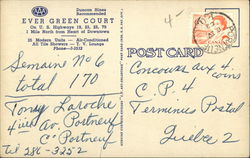 AAA
Duncan Hines
Recommended
EVER GREEN COURT
On U. S. Highways 19, 23, 25, 70
1 Mile North from Heart of Downtown
25 Modern Units — Air-Conditioned
All Tile Showers — T. V. Lounge
Phone 3-5333
POST CARD
Semaine No 6
total 170
Tony Laroche
4ième Av. Portneuf
Co Portneuf
tel 286-3252
Concours aux 4 coins
C.P. 4
Terminus Postal
Québec 2